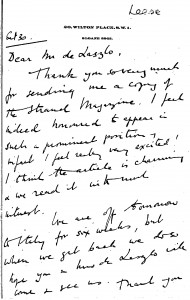 Leese
60, WILTON PLACE, S.W.1.
SLOANE
Oct 30.
Dear Mr de Laszlo.
Thank you so very much
for sending me a copy of
the Strand Magazine. I feel
indeed honoured to appear in
such a prominent position,
I feel very excited!
I think the article is charming
& we read it with much
interest.
We are off tomorrow
to Italy for six weeks, but
when we get back we do
hope you & Mrs de Laszlo will
come & see us. Thank you